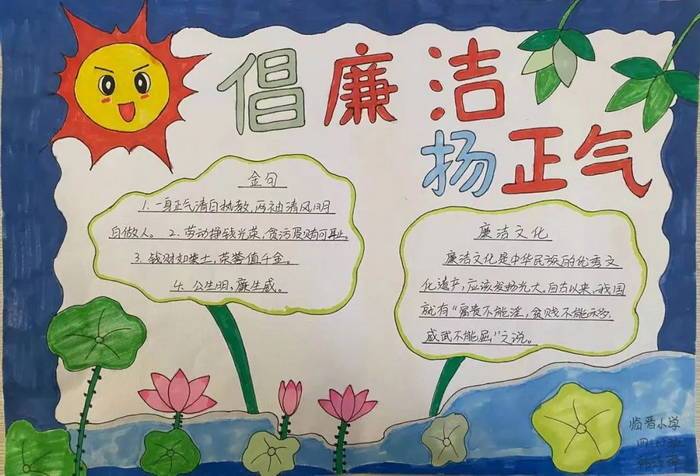 倡廉洁
扬正气
金句
1. 一身正气清白执教,两袖清风明
白做人。 2. 劳动挣钱光荣,贪污受贿可耻。
3. 钱财如粪土,荣誉值千金。
4. 公生明,廉生威。
廉洁文化
廉洁文化是中华民族的优秀文
化遗产,应该发扬光大,自古以来,我国
就有“富贵不能淫,贫贱不能移,
威武不能屈,”之说。
临晋小学